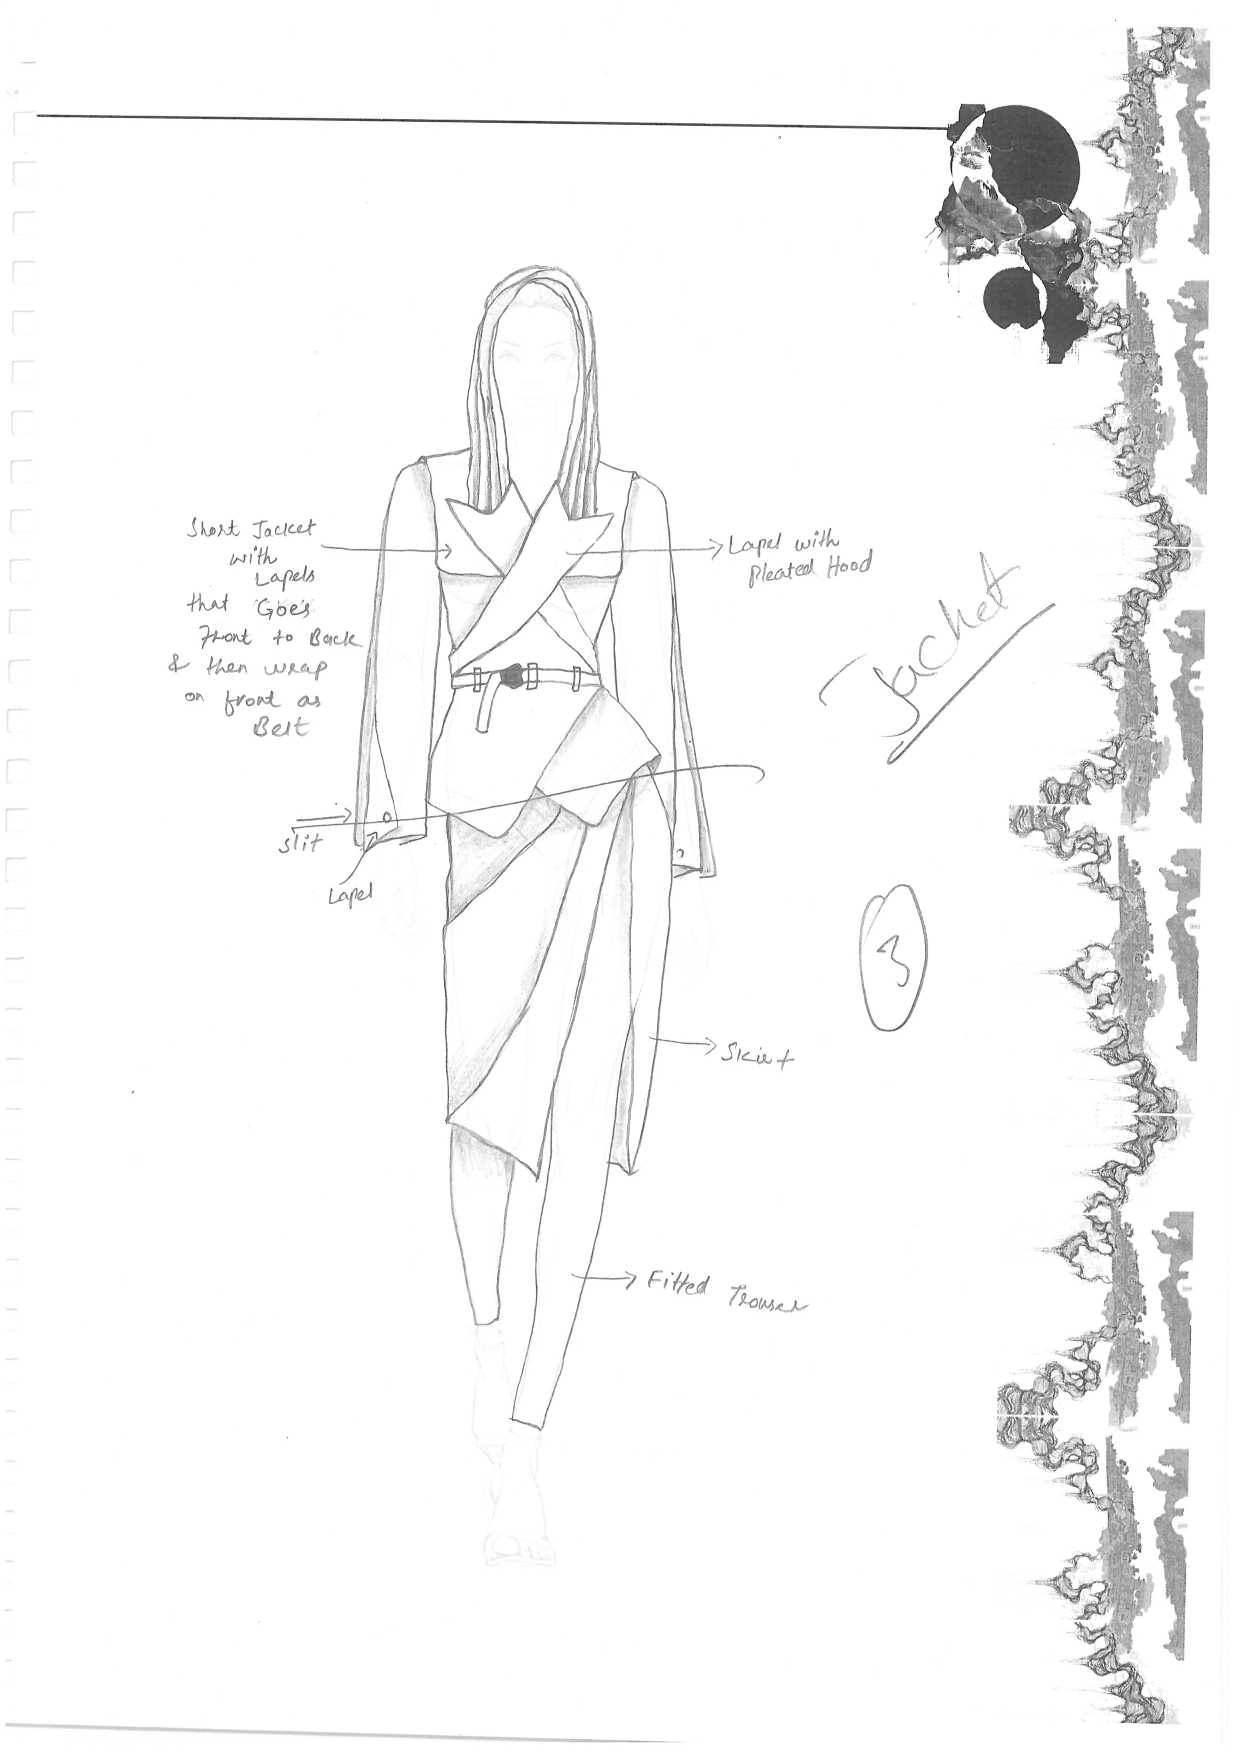 Short Jacket
with
Lapels
that Goe's
Front to Back
& then wrap
on front as
Belt
Lapel with
Pleated Hood
Jacket
Slit
Lapel
3
Skirt
Fitted Trouser